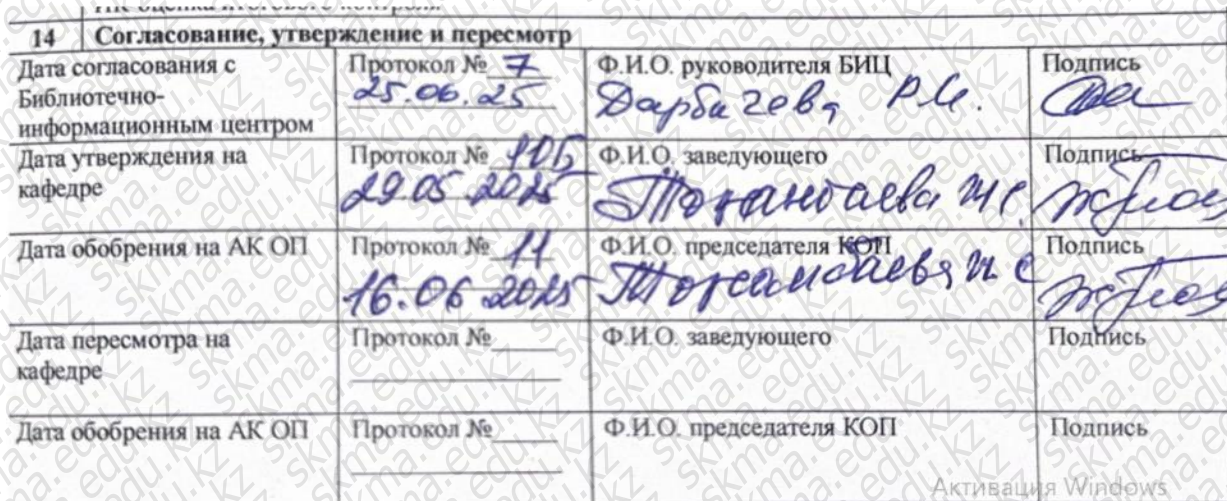 14 Согласование, утверждение и пересмотр
Дата согласования с Библиотечно-информационным центром
Протокол № 7
25.06.25
Ф.И.О. руководителя БИЦ
Дарбичева Р.И.
Подпись
Дата утверждения на кафедре
Протокол № 10Б
29.05 2025
Ф.И.О. заведующего
Токсанбаева Ж С
Подпись
Дата обобрения на АК ОП
Протокол № 11
16.06 2025
Ф.И.О. председателя КОП
Токсанбаева Ж С
Подпись
Дата пересмотра на кафедре
Протокол №
Ф.И.О. заведующего
Подпись
Дата обобрения на АК ОП
Протокол №
Ф.И.О. председателя КОП
Подпись
skma.edu.kz
Активация Windows